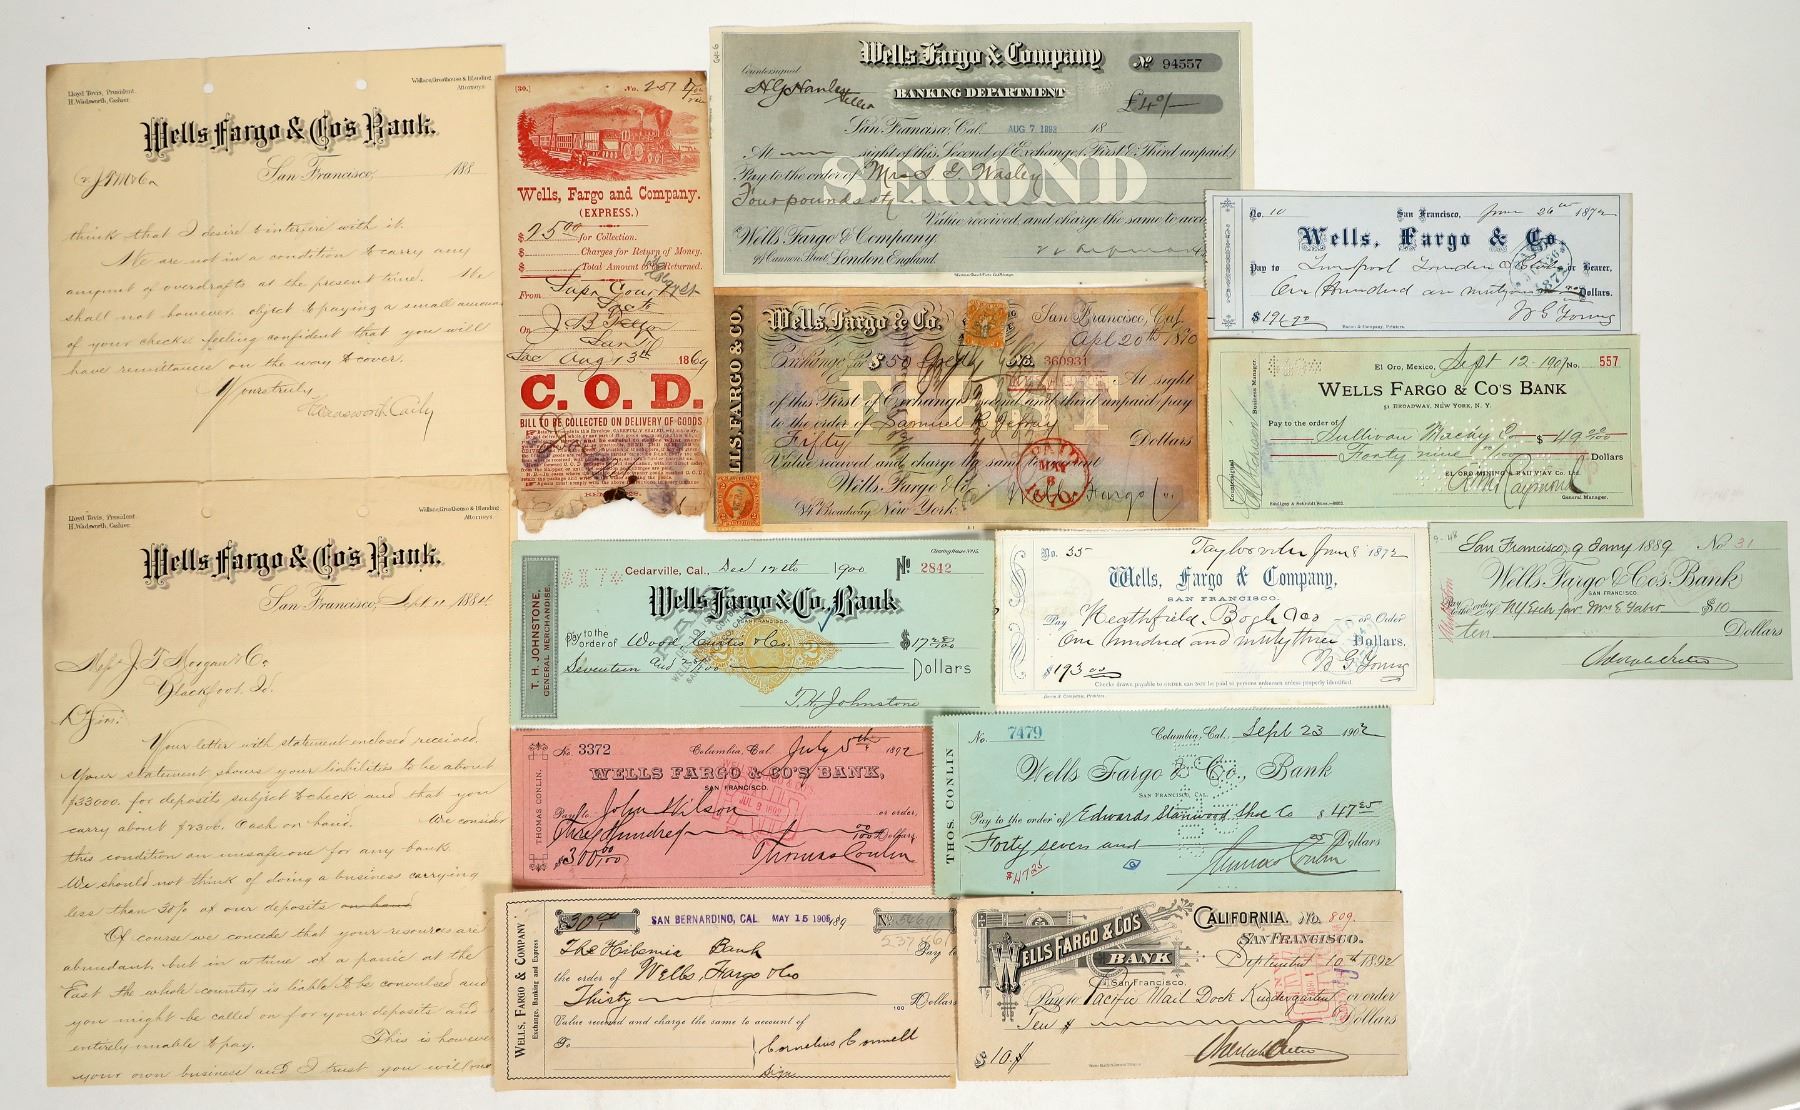 Lloyd Tevis, President.
H. Wadsworth, Cashier.
Wilson, Greathouse & Blanding
Attorneys.
Wells Fargo & Co's Bank.
San Francisco, 188
J.T.M & Co
think that I desire to interfere with it.
We are not in a condition to carry any
amount of overdrafts at the present time. We
shall not however, object to paying a small amount
of your checks feeling confident that you will
have remittances on the way to cover.
Yours truly
Lloyd Tevis, President.
H. Wadsworth, Cashier.
Wilson, Greathouse & Blanding
Attorneys.
Wells Fargo & Co's Bank.
San Francisco, Sept 1884
Mess J. T. Morgan & Co
Blackfoot, Id.
Sirs:
Your letter with statement enclosed received.
Your statement shows your liabilities to be about
$33000. for deposits subject to check and that you
carry about $2300. cash on hand. We consider
this condition an unsafe one for any bank.
We should not think of doing a business carrying
less than 30% of our deposits on hand.
Of course we concede that your resources are
abundant, but in a time of a panic at the
East the whole country is liable to be convulsed and
you might be called on for your deposits and
entirely unable to pay. This is however
your own business and I trust you will not
(30.) No. 257
Wells, Fargo and Company.
(EXPRESS.)
$25.00 for Collection.
$ Charges for Return of Money.
$ Total Amount to be Returned.
From Supr Court
On J B
Sac Aug 13th 1869
C. O. D.
BILL TO BE COLLECTED ON DELIVERY OF GOODS
Wells Fargo & Company
Countersigned
No 94557
BANKING DEPARTMENT
Teller
£4 0/-
San Francisco, Cal. AUG 7 1893 18
At sight of this Second of Exchange (First & Third unpaid)
SECOND
Pay to the order of Mrs S. G. Wasley
Four pounds stg
Value received and charge the same to acco
Wells Fargo & Company
94 Cannon Street, London England.
WELLS, FARGO & CO.
Wells, Fargo & Co.
San Francisco, Cal.
Apl 20th 1870
Exchange for $50 No. 360931
At sight
FIRST
of this First of Exchange second and third unpaid pay
to the order of Samuel P. Jefray
Fifty Dollars
Value received and charge the same to account
Wells, Fargo & Co.
84 Broadway, New York
PAID
MAY
6
1870
No. 10 San Francisco, June 26th 1872
Wells, Fargo & Co.
Pay to Liverpool London & Globe or Bearer,
Dollars.
W G Young
Bacon & Company, Printers.
El Oro, Mexico, Sept 12-1907 No. 557
WELLS FARGO & CO'S BANK
51 BROADWAY, NEW YORK, N. Y.
Business Manager.
Countersigned
Pay to the order of Sullivan Machy Co $49 00/100
Forty nine 00/100 Dollars
EL ORO MINING & RAILWAY Co. Ltd.
General Manager.
T. H. JOHNSTONE,
GENERAL MERCHANDISE.
Clearing House No 15.
$17$
Cedarville, Cal., Dec 12th 1900 No 2842
Wells Fargo & Co. Bank
SAN FRANCISCO
Pay to the
order of Wood, Curtis & Co. $17 28/100
Seventeen and 28/100 Dollars
T.H. Johnstone
No. 35 Taylorville June 8 1872
Wells, Fargo & Company,
SAN FRANCISCO.
Pay Heathfield, Bogel & Co or Order
One hundred and ninety three Dollars.
$193.00 W G Young
Checks drawn payable to ORDER can not be paid to persons unknown unless properly identified.
Bacon & Company, Printers.
San Francisco, 9 Jany 1889 No 31
Wells Fargo & Co's Bank
SAN FRANCISCO
Pay
to the order
of NY Exch for Mrs E Faber $10
ten Dollars
THOMAS CONLIN.
No. 3372 Columbia, Cal. July 5th 1892
WELLS FARGO & CO'S BANK,
SAN FRANCISCO.
Pay to John Wilson or order,
Three Hundred 00/100 Dollars,
$300 00/100 Thomas Conlin
THOS. CONLIN
No. 7479 Columbia, Cal., Sept 23 1902
Wells Fargo & Co., Bank
SAN FRANCISCO, CAL.
Pay to the order of Edwards Stanwood Shoe Co $47 25
Forty seven and 25 Dollars
$47 25
Thomas Conlin
WELLS, FARGO & COMPANY
Exchange, Banking and Express
$30 SAN BERNARDINO, CAL. MAY 15 1905 189 No
The Hibernia Bank Pay to
the order of Wells, Fargo & Co
Thirty 100 Dollars
Value received and charge the same to account of
To
Cornelius Connell
sign
WELLS FARGO & CO'S
BANK
San Francisco.
CALIFORNIA. No. 809.
SAN FRANCISCO.
September 10th 1892
Pay to Pacific Mail Dock Kindergarten or order
Ten $ Dollars
$10.